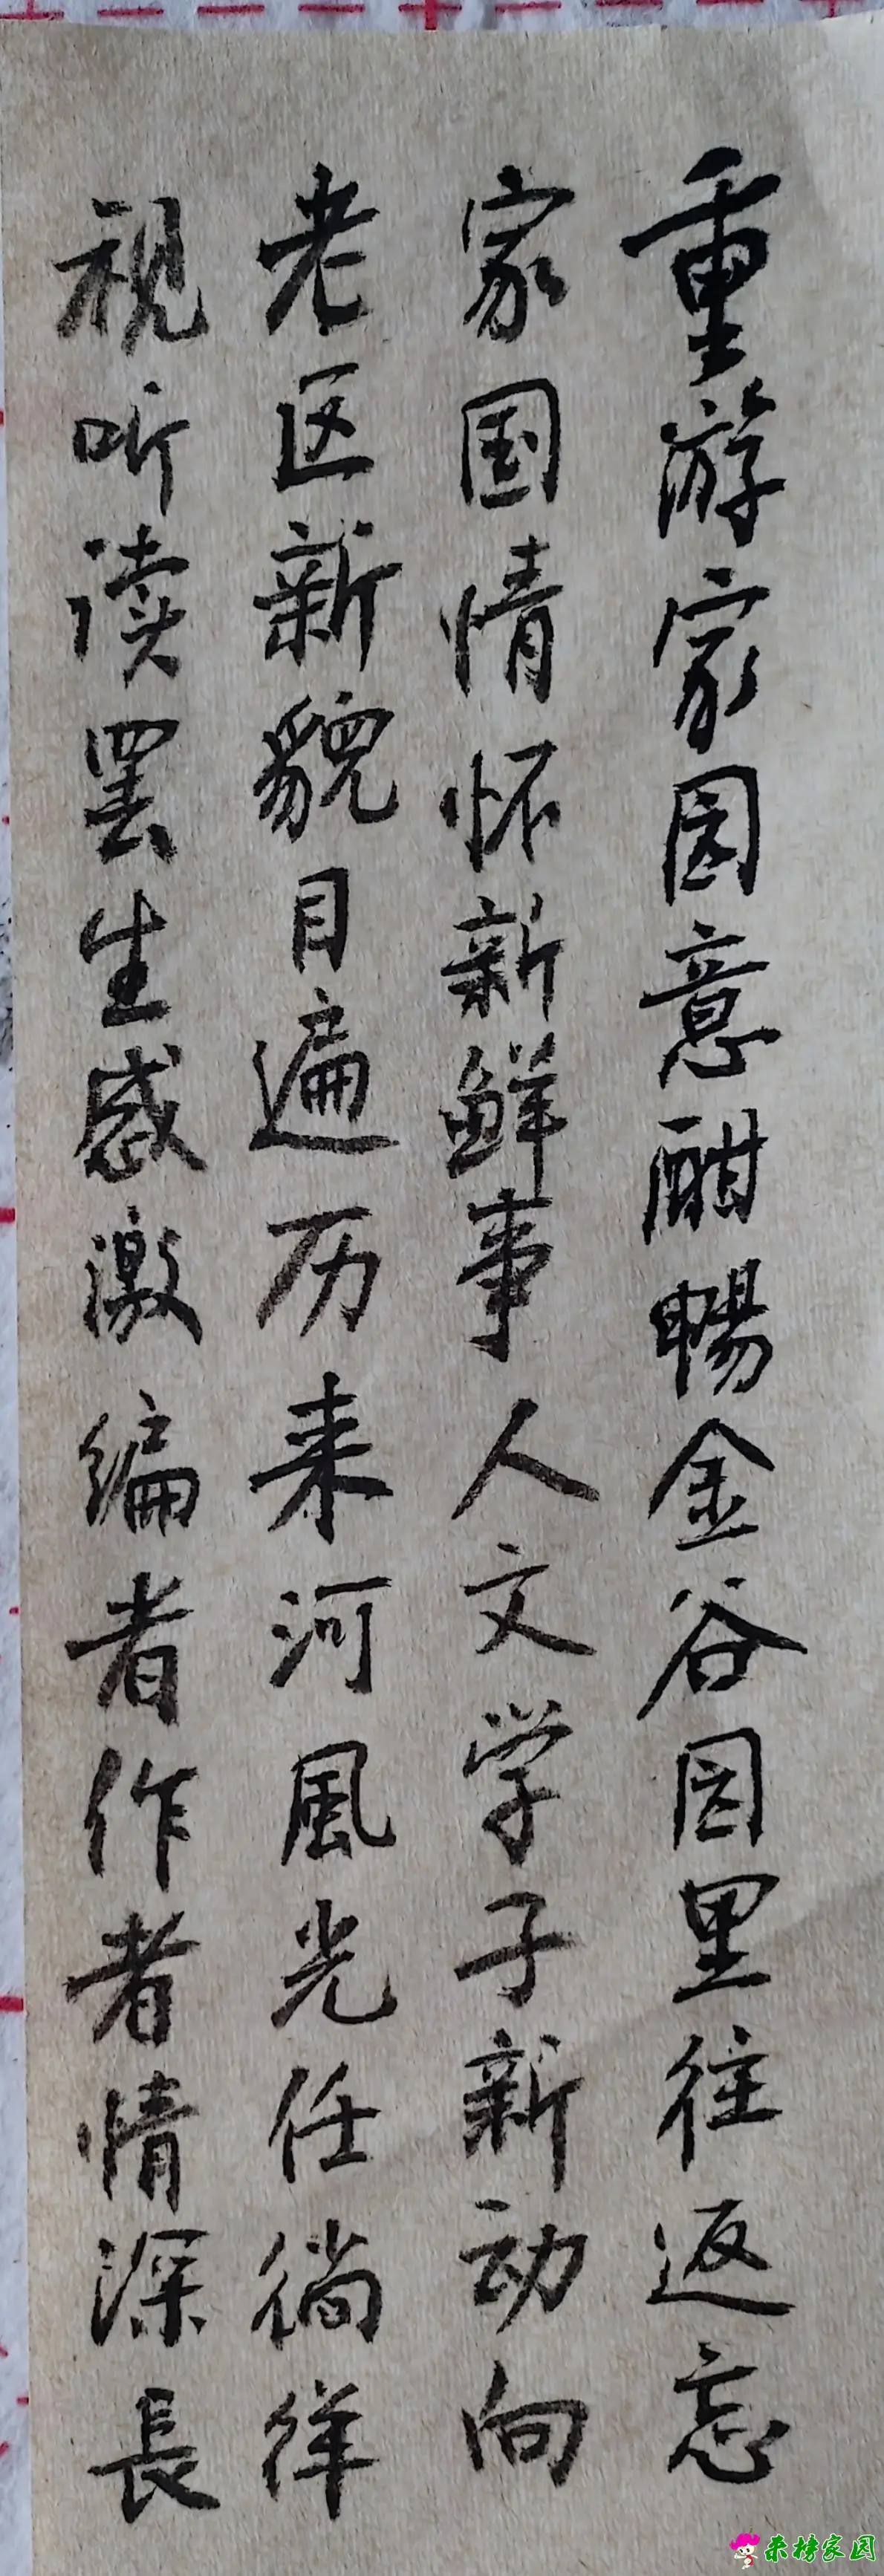 重游家园意酣暢金谷园里往返忘
家国情怀新鲜事人文学子新动向
老区新貌目遍历来河風光任徜徉
视听读罢生感激编者作者情深長
来榜家园